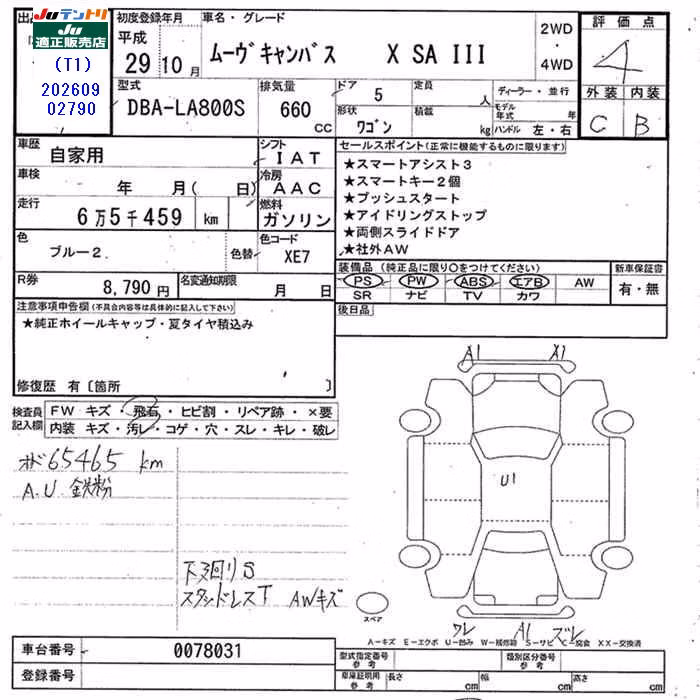 Juテントリ
Ju適正販売店
(T1)
202609
02790
初度登録年月
平成
29 10月
車名・グレード
ムーヴキャンバス X SA III
2WD
・
4WD
評価点
4
外装 内装
C B
型式
DBA-LA800S
排気量
660
CC
ドア
5
定員
人
形状
ワゴン
積載
kg
ディーラー・並行
モデル年式 年
ハンドル 左・右
車歴
自家用
シフト
IAT
車検
年 月( 日)
冷房
AAC
走行
6万5千459 km
燃料
ガソリン
色
ブルー2.
色替
色コード
XE7
R券
8,790円
名変通知期限
月 日
セールスポイント(正常に機能するものに限ります)
★スマートアシスト3
★スマートキー2個
★プッシュスタート
★アイドリングストップ
★両側スライドドア
★社外AW
装備品(純正品に限り○をつけてください)
PS PW ABS エアB AW
SR ナビ TV カワ
新車保証書
有・無
後日品
注意事項申告欄(不具合内容等は具体的に記入して下さい)
★純正ホイールキャップ・夏タイヤ積込み
修復歴 有〔箇所 〕
検査員記入欄
FW キズ・飛石・ヒビ割・リペア跡・×要
内装 キズ・汚レ・コゲ・穴・スレ・キレ・破レ
オド65465km
A.U 鉄粉
下廻りS
スタッドレスT AWキズ
A1 X1
U1
ワレ A1 ズレ
スペア
A-キズ E-エクボ U-凹み W-補修跡 S-サビ C-腐食 XX-交換済
車台番号
0078031
登録番号
型式指定番号
参考
類別区分番号
参考
車庫証明用
参考
長さ cm 幅 cm 高さ